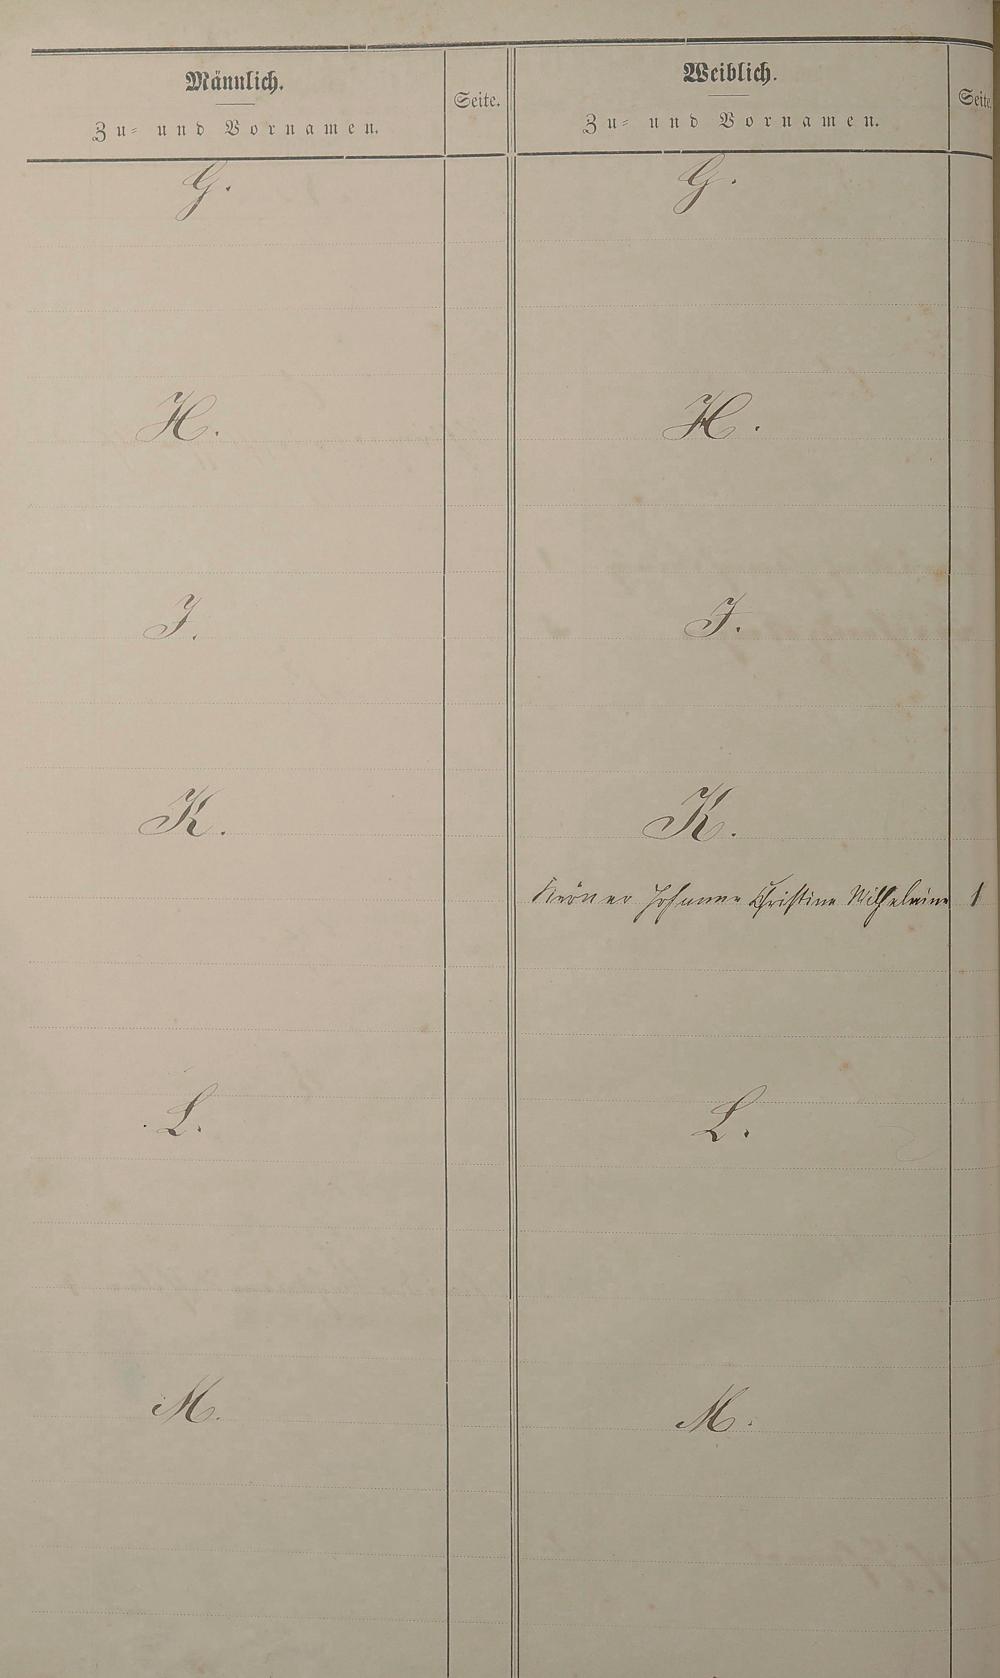 Männlich.
Zu- und Vornamen.
Seite.
Weiblich.
Zu- und Vornamen.
Seite.
G.
G.
H.
H.
J.
J.
K.
K.
Körner Johanne Christine Wilhelmine 1
L.
L.
M.
M.